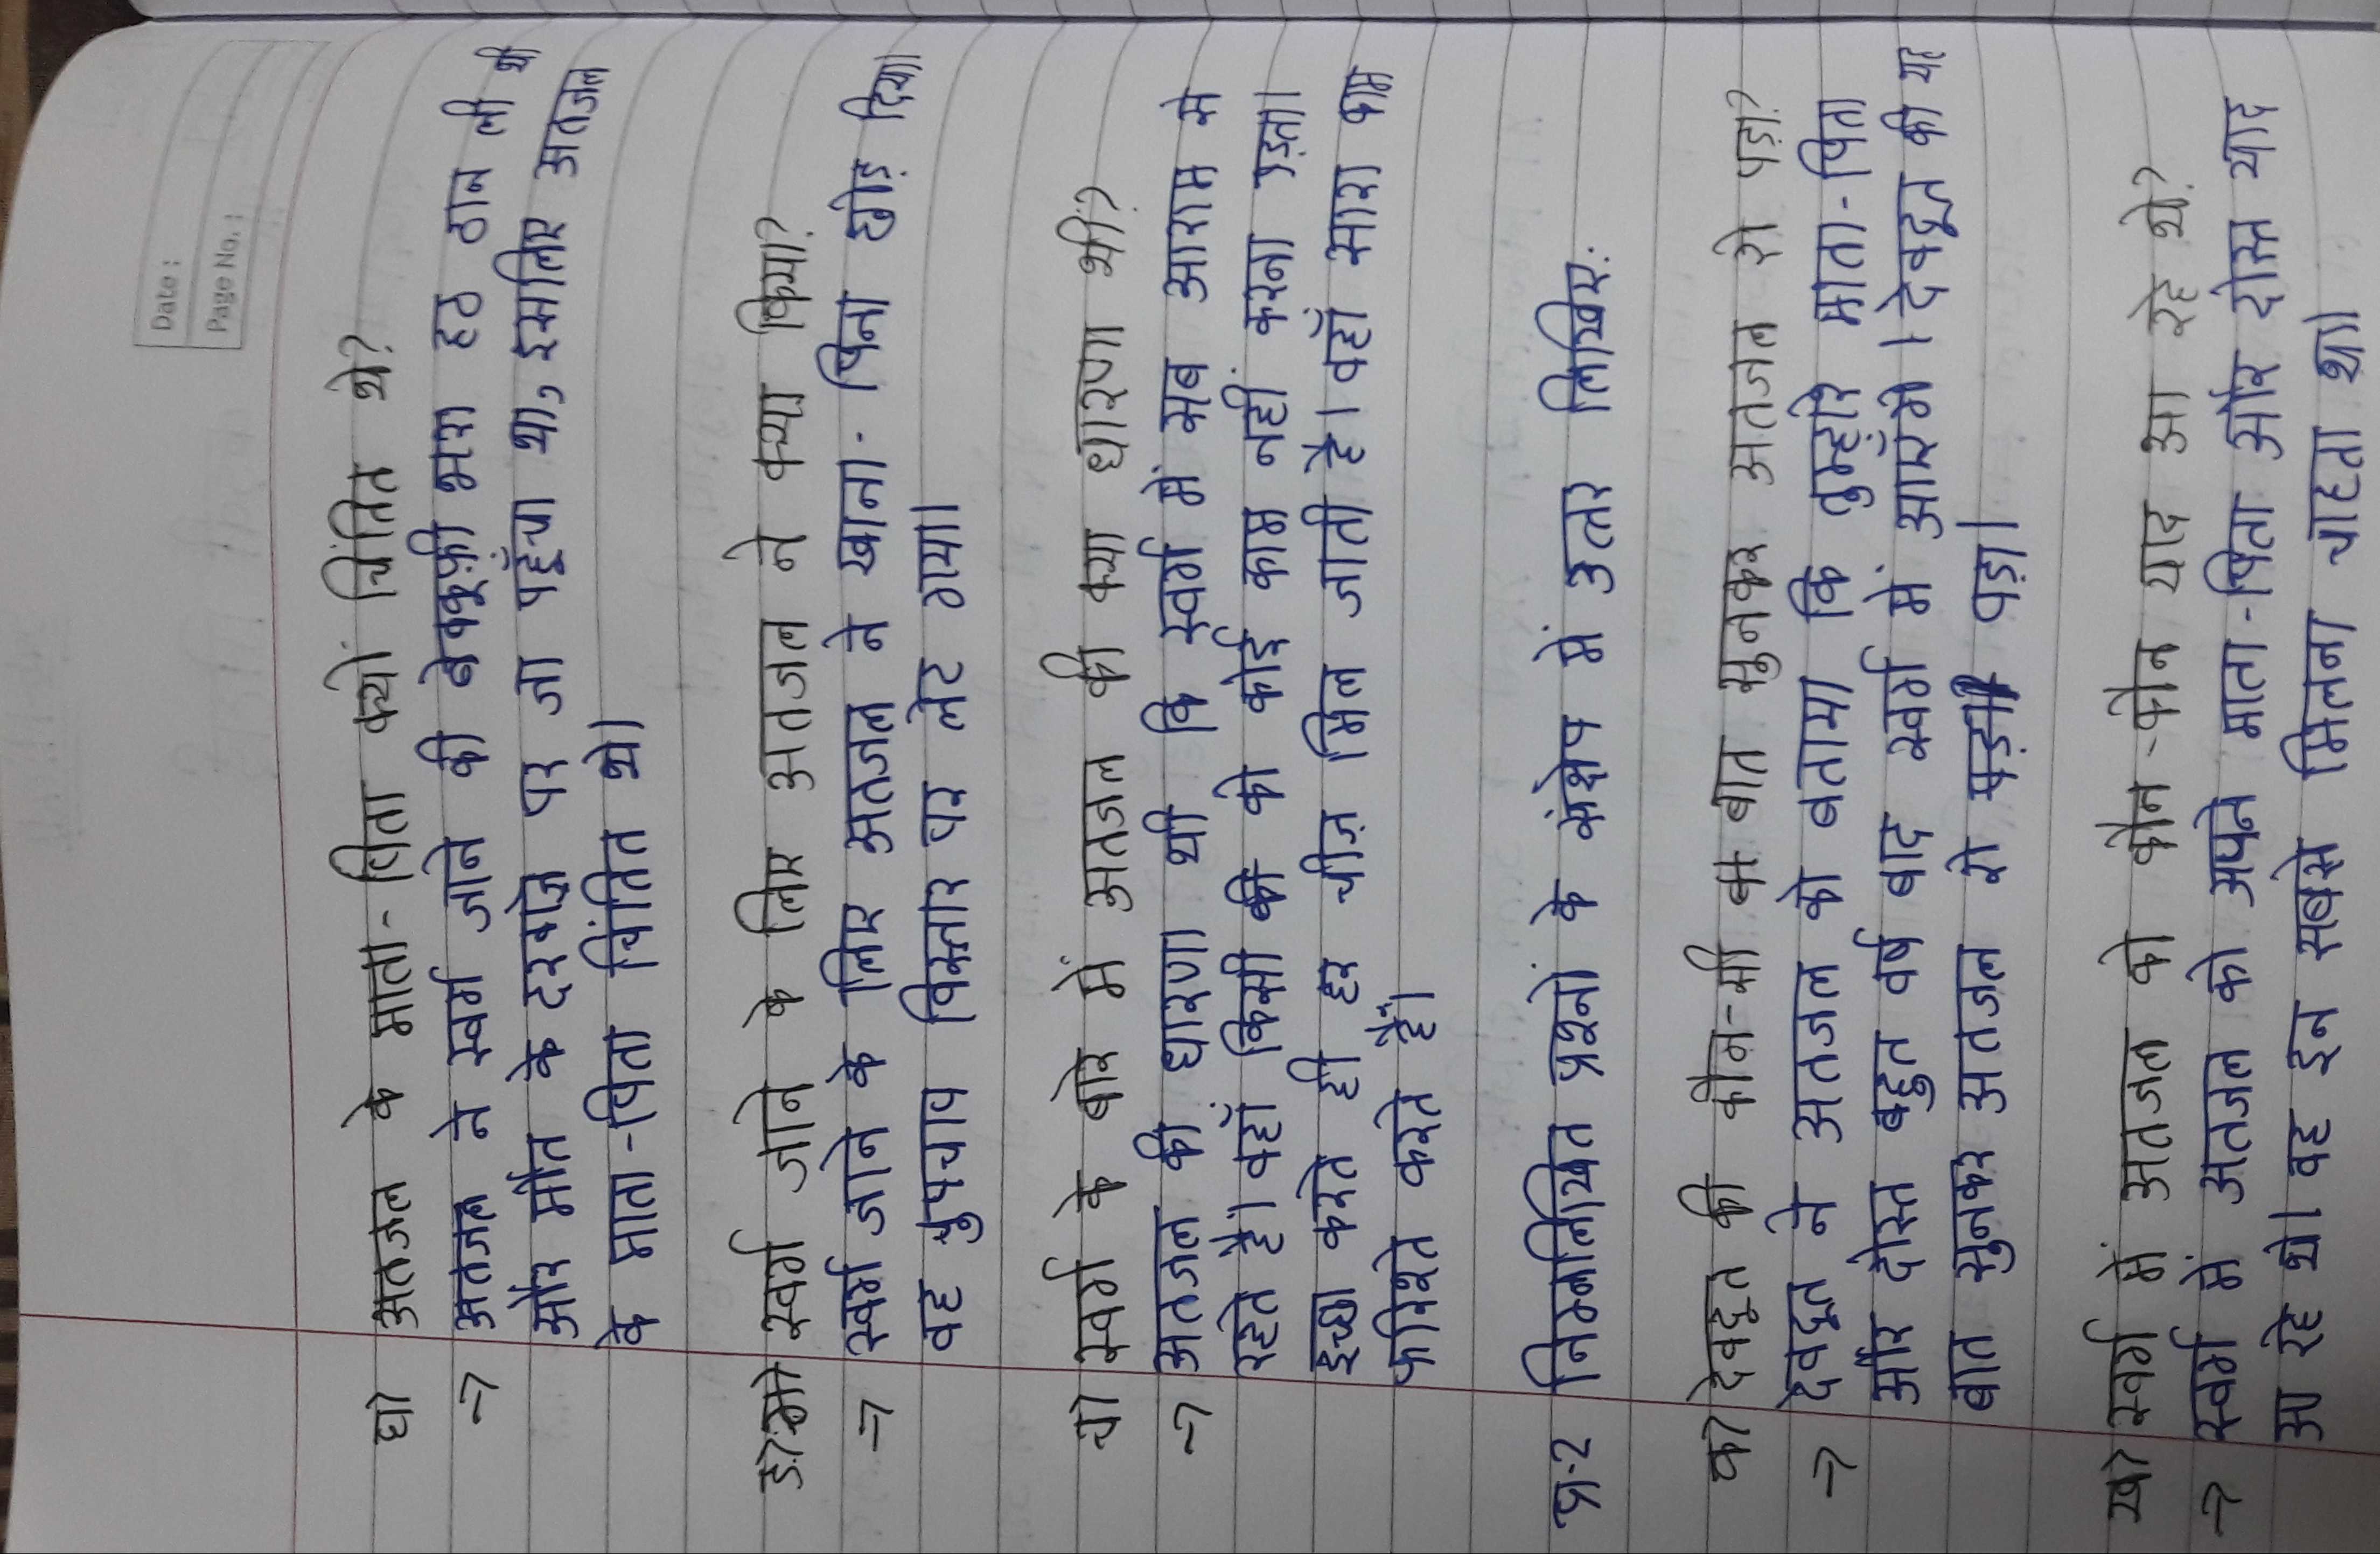 Date :
Page No. :
घ) अतजल के माता-पिता क्यों चिंतित थे?
→ अतजल ने स्वर्ग जाने की बेवकूफ़ी भरा हठ ठान ली थी
और मौत के दरवाज़े पर जा पहुँचा था, इसलिए अतजल
के माता-पिता चिंतित थे।
ड़) स्वर्ग जाने के लिए अतजल ने क्या किया?
→ स्वर्ग जाने के लिए अतजल ने खाना- पिना छोड़ दिया।
वह चुपचाप विस्तार पर लेट गया।
च) स्वर्ग के बारे में अतजल की क्या धारणा थीं?
→ अतजल की धारणा थी कि स्वर्ग में सब आराम से
रहते हैं। वहाँ किसी की को कोई काम नहीं करना पड़ता।
इच्छा करते ही हर चीज़ मिल जाती है। वहाँ सारा काम
फरिश्ते करते हैं।
प्र.2 निम्नलिखित प्रश्नों के संक्षेप में उतर लिखिए:
क) देवदूत की कौन-सी बात सुनकर अतजल रो पड़ा?
→ देवदूत ने अतजल को बताया कि तुम्हारे माता-पिता
और दोस्त बहुत वर्ष बाद स्वर्ग में आएँगे। देवदूत की यह
बात सुनकर अतजल रो पड़ा।
ख) स्वर्ग में अतजल को कौन-कौन याद आ रहे थे?
→ स्वर्ग में अतजल को अपने माता-पिता और दोस्त याद
आ रहे थे। वह इन सबसे मिलना चाहता था।